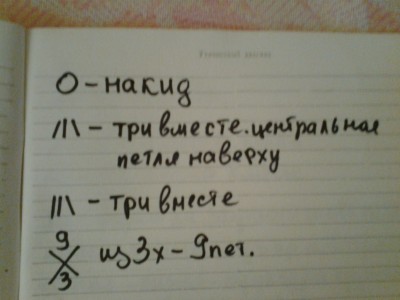 О - накид
/|\ - три вместе. центральная
петля наверху
||\ - три вместе
9
3
из 3х - 9 пет.